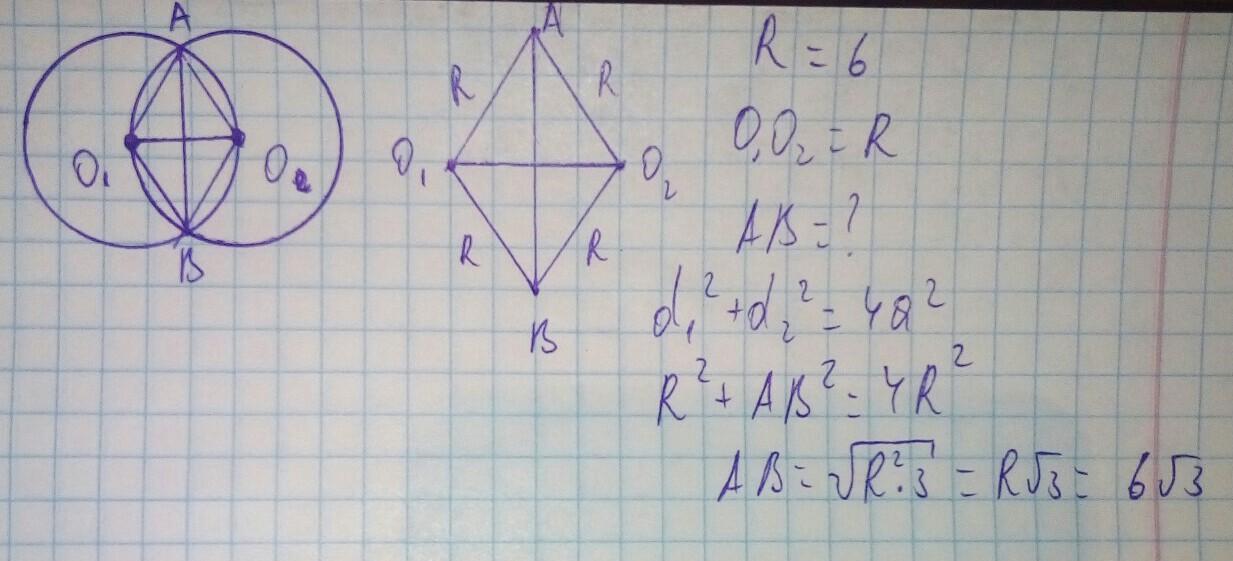 A
O₁
O₂
B
A
R
R
O₁
O₂
R
R
B
R = 6
O₁O₂ = R
AB = ?
d₁² + d₂² = 4a²
R² + AB² = 4R²
AB = √(R²·3) = R√3 = 6√3